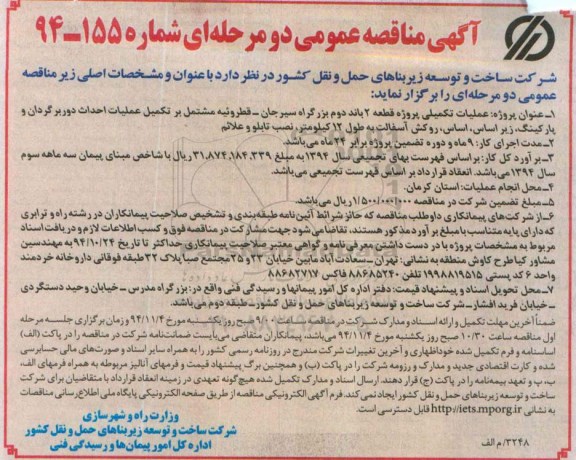 آگهی مناقصه عمومی دو مرحله‌ای شماره ۱۵۵ـ۹۴
شرکت ساخت و توسعه زیربناهای حمل و نقل کشور در نظر دارد با عنوان و مشخصات اصلی زیر مناقصه
عمومی دو مرحله‌ای را برگزار نماید:
۱ـ عنوان پروژه: عملیات تکمیلی پروژه قطعه ۲ باند دوم بزرگراه سیرجان ـ قطروئیه مشتمل بر تکمیل عملیات احداث دوربرگردان و
پارکینگ، زیر اساس، اساس، روکش آسفالت به طول ۱۲ کیلومتر، نصب تابلو و علائم
۲ـ مدت اجرای کار: ۹ ماه و دوره تضمین پروژه برابر ۲۴ ماه می‌باشد.
۳ـ برآورد کل کار: بر اساس فهرست بهای تجمیعی سال ۱۳۹۴ به مبلغ ۳۱,۸۷۴,۱۸۴,۳۳۹ ریال با شاخص مبنای پیمان سه ماهه سوم
سال ۱۳۹۴ می‌باشد. انعقاد قرارداد بر اساس فهرست تجمیعی می‌باشد.
۴ـ محل انجام عملیات: استان کرمان.
۵ـ مبلغ تضمین شرکت در مناقصه ۱/۵۰۰/۰۰۰/۰۰۰ ریال می‌باشد.
۶ـ از شرکت‌های پیمانکاری داوطلب مناقصه که حائز شرائط آئین‌نامه طبقه‌بندی و تشخیص صلاحیت پیمانکاران در رشته راه و ترابری
که دارای پایه متناسب با مبلغ برآورد مذکور هستند، تقاضا می شود جهت مشارکت در مناقصه فوق و کسب اطلاعات لازم و دریافت اسناد
مربوط به مشخصات پروژه با در دست داشتن معرفی نامه و گواهی معتبر صلاحیت پیمانکاری حداکثر تا تاریخ ۹۴/۱۰/۲۴ به مهندسین
مشاور کیاطرح کاوش منطقه به نشانی: تهران ـ سعادت آباد مابین خیابان ۲۳ و ۲۵ مجتمع صبا پلاک ۳۲ طبقه فوقانی داروخانه خردمند
واحد ۶ کد پستی ۱۹۹۸۸۱۹۵۱۵ تلفن ۸۸۶۸۵۲۴۰ فاکس ۸۸۶۸۲۷۱۷
۷ـ محل تحویل اسناد و پیشنهاد قیمت: دفتر اداره کل امور پیمانها و رسیدگی فنی واقع در: بزرگراه مدرس ـ خیابان وحید دستگردی
ـ خیابان فرید افشار ـ شرکت ساخت و توسعه زیربناهای حمل و نقل کشور ـ طبقه دوم می‌باشد.
ضمناً آخرین مهلت تکمیل و ارائه اسناد و مدارک شرکت در مناقصه ساعت ۹/۰۰ صبح روز یکشنبه مورخ ۹۴/۱۱/۴ و زمان برگزاری جلسه مرحله
اول مناقصه ساعت ۱۰/۳۰ صبح روز یکشنبه مورخ ۹۴/۱۱/۴ می‌باشد، پیمانکاران متقاضی می‌بایست ضمانتنامه شرکت در مناقصه را در پاکت (الف)
اساسنامه و فرم تکمیل شده خوداظهاری و آخرین تغییرات شرکت مندرج در روزنامه رسمی کشور را به همراه سایر اسناد و صورت‌های مالی حسابرسی
شده و کارت اقتصادی جدید و مدارک و رزومه شرکت را در پاکت (ب) و همچنین برگ پیشنهاد قیمت و فرمهای آنالیز مربوطه به همراه فرمهای الف،
ب، پ و تعهد بیمه‌نامه را در پاکت (ج) قرار دهند. ارسال اسناد و مدارک تکمیل شده هیچ‌گونه تعهدی در زمینه انعقاد قرارداد با متقاضیان برای شرکت
ساخت و توسعه زیربناهای حمل و نقل کشور ایجاد نمی‌کند. فرم آگهی الکترونیکی مناقصه از طریق صفحه الکترونیکی پایگاه ملی اطلاع‌رسانی مناقصات
به نشانی http://iets.mporg.ir قابل دسترسی است.
وزارت راه و شهرسازی
شرکت ساخت و توسعه زیربناهای حمل و نقل کشور
اداره کل امور پیمان‌ها و رسیدگی فنی
۳۲۴۸/م الف